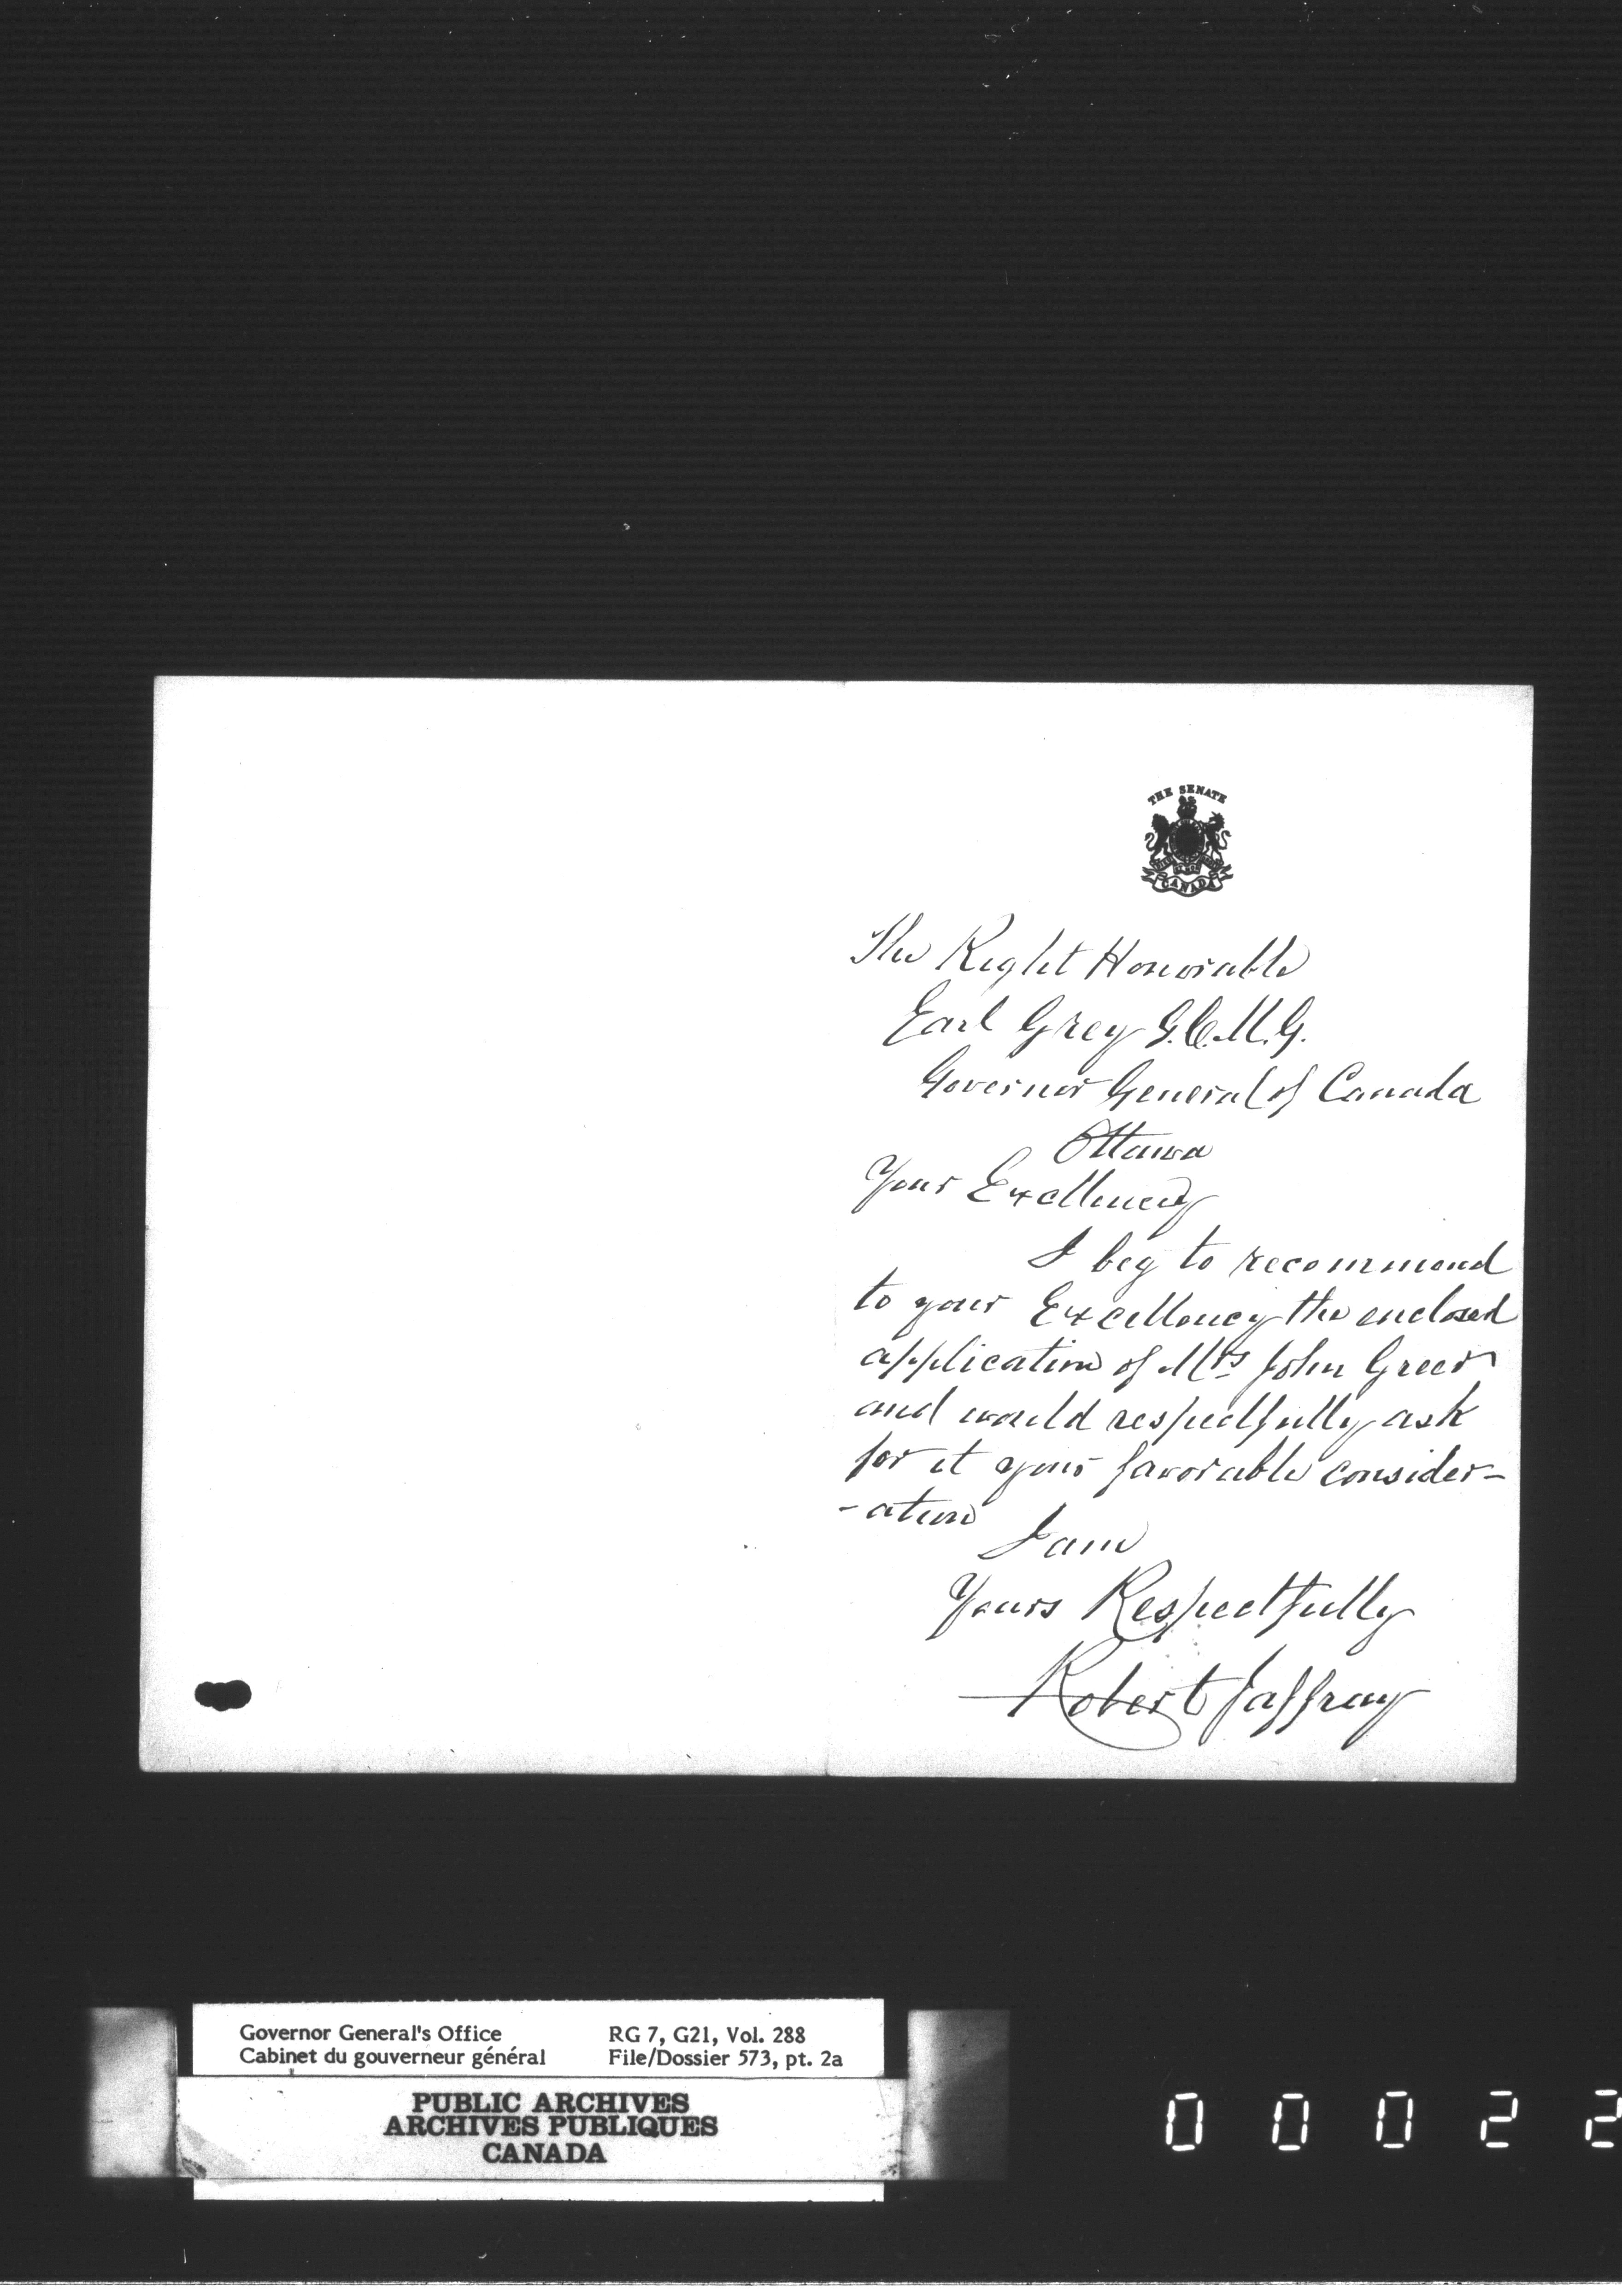 THE SENATE
CANADA
The Right Honorable
Earl Grey G.C.M.G.
Governor General of Canada
Ottawa
Your Excellency
I beg to recommend
to your Excellency the enclosed
application of Mrs John Greer
and would respectfully ask
for it your favorable consider-
-ation
I am
Yours Respectfully
Robert Jaffray
Governor General's Office RG 7, G21, Vol. 288
Cabinet du gouverneur général File/Dossier 573, pt. 2a
PUBLIC ARCHIVES
ARCHIVES PUBLIQUES
CANADA
00022